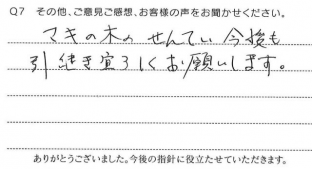 Q7 その他、ご意見ご感想、お客様の声をお聞かせください。
マキの木のせんてい今後も
引続き宜ろしくお願いします。
ありがとうございました。今後の指針に役立たせていただきます。